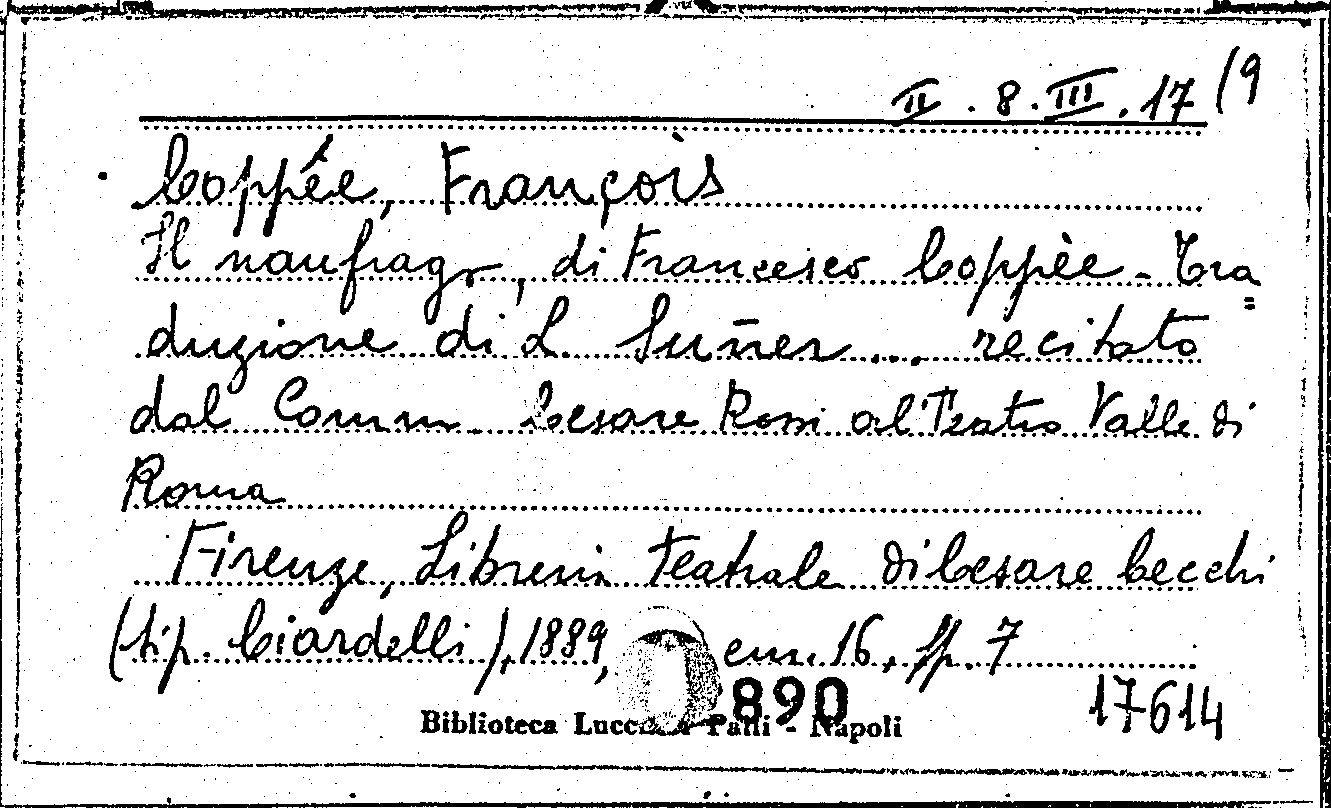 II . 8 . III . 17 (9
Coppée, François
Il naufrago, di Francesco Coppèe - Tra
=
duzione di L. Suñer ... recitato
dal Comm. Cesare Rossi al Teatro Valle di
Roma
Firenze, Libreria teatrale di Cesare Cecchi
(tip. Ciardelli), 1889, cm. 16, pp. 7
890
17614
Biblioteca Lucchesi Palli - Napoli